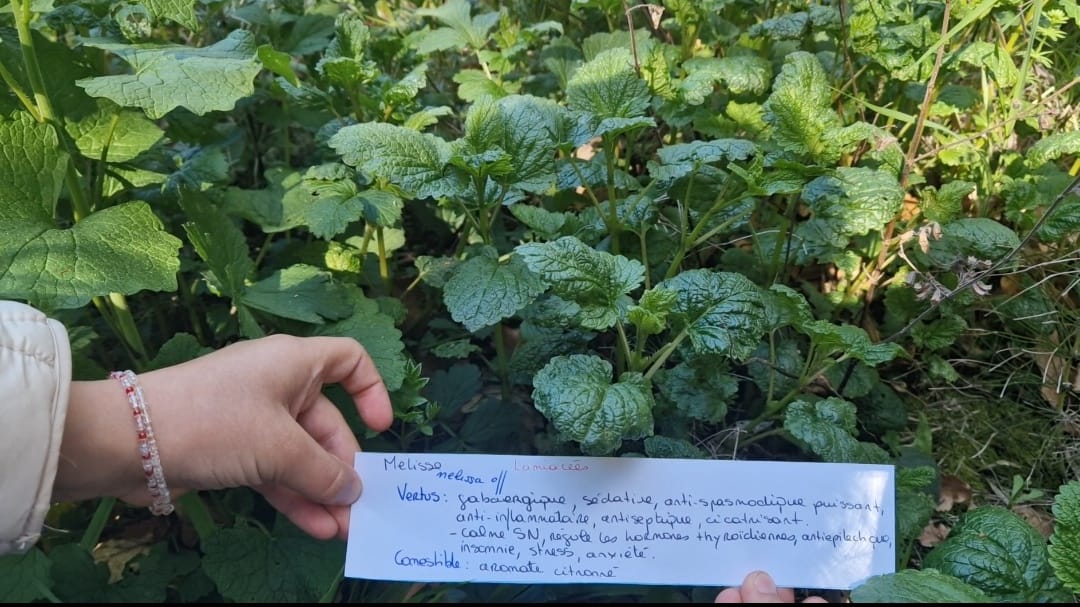 Melisse Lamiacées
melissa off
Vertus : gabaergique, sédative, anti-spasmodique puissant,
anti-inflammatoire, antiseptique, cicatrisant.
- calme SN, régule les hormones thyroïdiennes, antiépileptique,
insomnie, stress, anxiété.
Comestible : aromate citronné